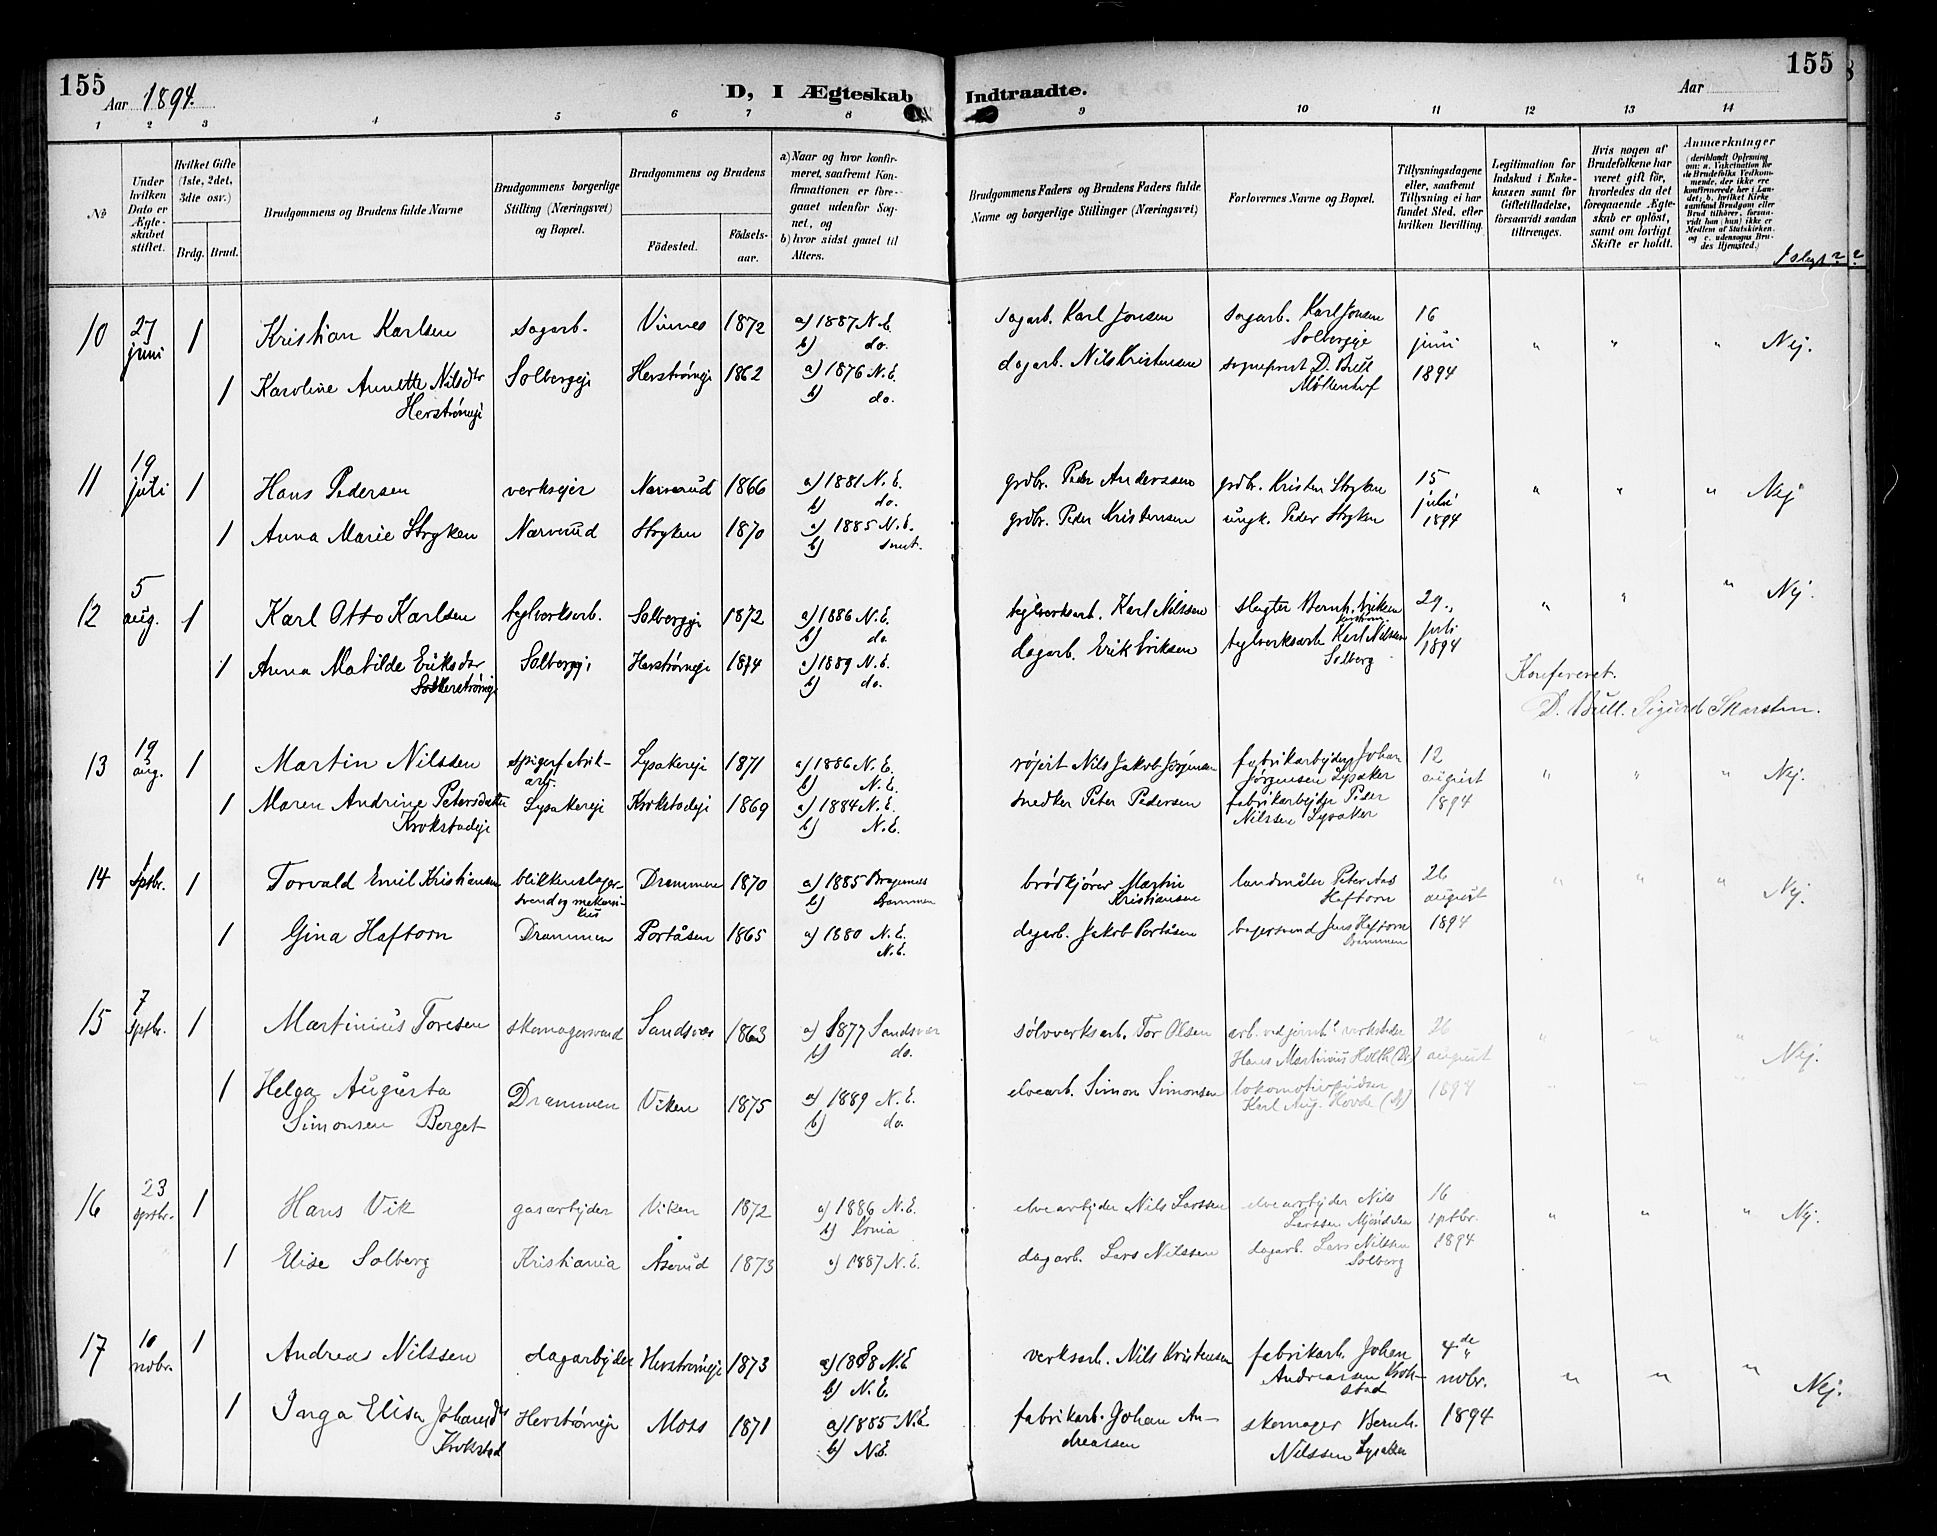 155
Aar 1894.
D, I Ægteskab Indtraadte.
Aar
155
1 2 3 4 5 6 7 8 9 10 11 12 13 14
No
Under hvilken Dato er Ægteskabet stiftet.
Hvilket Gifte (1ste, 2det, 3die osv.)
Brdg. Brud.
Brudgommens og Brudens fulde Navne
Brudgommens borgerlige Stilling (Næringsvei) og Bopæl.
Brudgommens og Brudens
Födested. Födselsaar.
a) Naar og hvor konfirmeret, saafremt Konfirmationen er foregaaet udenför Sognet, og
b) hvor sidst gaaet til Alters.
Brudgommens Faders og Brudens Faders fulde Navne og borgerlige Stillinger (Næringsvei)
Forlovernes Navne og Bopæl.
Tillysningsdagene eller, saafremt Tillysning ei har fundet Sted, efter hvilken Bevilling.
Legitimation for Indskud i Enkekassen samt for Giftetilladelse, forsaavidt saadan tiltrænges.
Hvis nogen af Brudefolkene har været gift för, hvorledes da det foregaaende Ægteskab er oplöst, samt om lovligt Skifte er holdt.
Anmærkninger
10 27 juni 1 Kristian Karlsen sagarb. Vinnes 1872 a) 1887 N.E. b) do. sagarb. Karl Jonsen sagarb. Karl Jonsen Solbergeje 16 juni 1894 " " " Nej.
1 Karoline Annette Nilsdtr Herstrømeje Solbergeje Herstrømeje 1862 a) 1876 N.E. b) do. dagarb. Nils Kristensen sogneprest D. Bull
11 19 juli 1 Hans Pedersen verksejer Narverud 1866 a) 1881 N.E. b) do. grdbr. Peder Anderssen grdbr. Kristen Stryken 15 juli 1894 " " " Nej
1 Anna Marie Stryken Narverud Stryken 1870 a) 1885 N.E. b) grdbr. Peder Kristensen ungk. Peder Stryken
12 5 aug. 1 Karl Otto Karlsen teglverksarb. Solbergeje 1872 a) 1886 N.E. b) do. teglverksarb. Karl Nilssen slagter Bernh. Eriksen 29. juli 1894 " " " Nej.
1 Anna Matilde Eriksdtr Herstrømeje Solbergeje Herstrømeje 1874 a) 1889 N.E. b) do. dagarb. Erik Eriksen teglverksarb. Karl Nilssen Solberg
Konfereret.
D. Bull. Sigurd Skarsten.
13 19 aug. 1 Martin Nilssen spigerfabrikarb. Lysakereje 1871 a) 1886 N.E. b) N.E. Nils Jakob Jörgensen fabrikarbejder Johan Jörgensen Lysaker 12 august 1894 " " " Nej.
1 Maren Andrine Petersdatter Krokstadeje Lysakereje Krokstadeje 1869 a) 1884 N.E. b) N.E. snedker Peter Pedersen fabrikarbejder Peder Nilssen Lysaker
14 1 sptbr. 1 Torvald Emil Kristiansen blikkenslagersvend og mekanikus Drammen 1870 a) 1885 Bragernes b) Drammen brödkjörer Martin Kristiansen landmåler Peter Aas Haftorn 26 august 1894 " " " Nej.
1 Gina Haftorn Drammen Portåsen 1865 a) 1880 N.E. N.E. dagarb. Jakob Portåsen bagersvend Jens Haftorn Drammen
15 7 sptbr. 1 Martinius Toresen skomagersvend Sandsvær 1863 a) 1877 Sandsvær b) do. sölvverksarb. Tor Olsen arb. ved jernb. verksteder Hans Martinius Holth (Dr) 26 august 1894 " " " Nej.
1 Helga Augusta Simonsen Berget Drammen Viken 1875 a) 1889 N.E. b) do. elvearb. Simon Simonsen lokomotivpudser Karl Aug. Hovde
16 23 sptbr. 1 Hans Vik gasarbejder Viken 1872 a) 1886 N.E. b) Krnia elvearbejder Nils Larssen elvearbejder Nils Larssen Mjöndalen 16 sptbr. 1894 " " " Nej.
1 Elise Solberg Kristiania Åserud 1873 a) 1887 N.E. dagarb. Lars Nilssen dagarb. Lars Nilssen Solberg
17 10 novbr. 1 Andreas Nilssen dagarbejder Herstrømeje 1873 a) 1888 N.E b) N.E. verksarb. Nils Kristensen fabrikarb. Johan Andreassen Krokstad 4de novbr. 1894 " " " Nej.
1 Inga Elisa Johansdtr Krokstad Herstrømeje Moss 1871 a) 1885 N.E. b) N.E. fabrikarb. Johan Andreassen skomager Bernh. Nilssen Lysaker